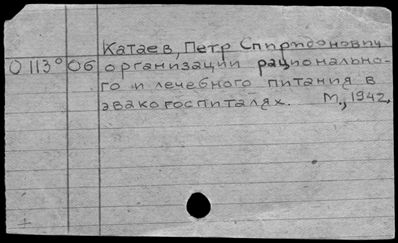 Катаев, Петр Спиридонович
0113° 06 организации рационально-
го и лечебного питания в
эвакогоспиталях. М., 1942.